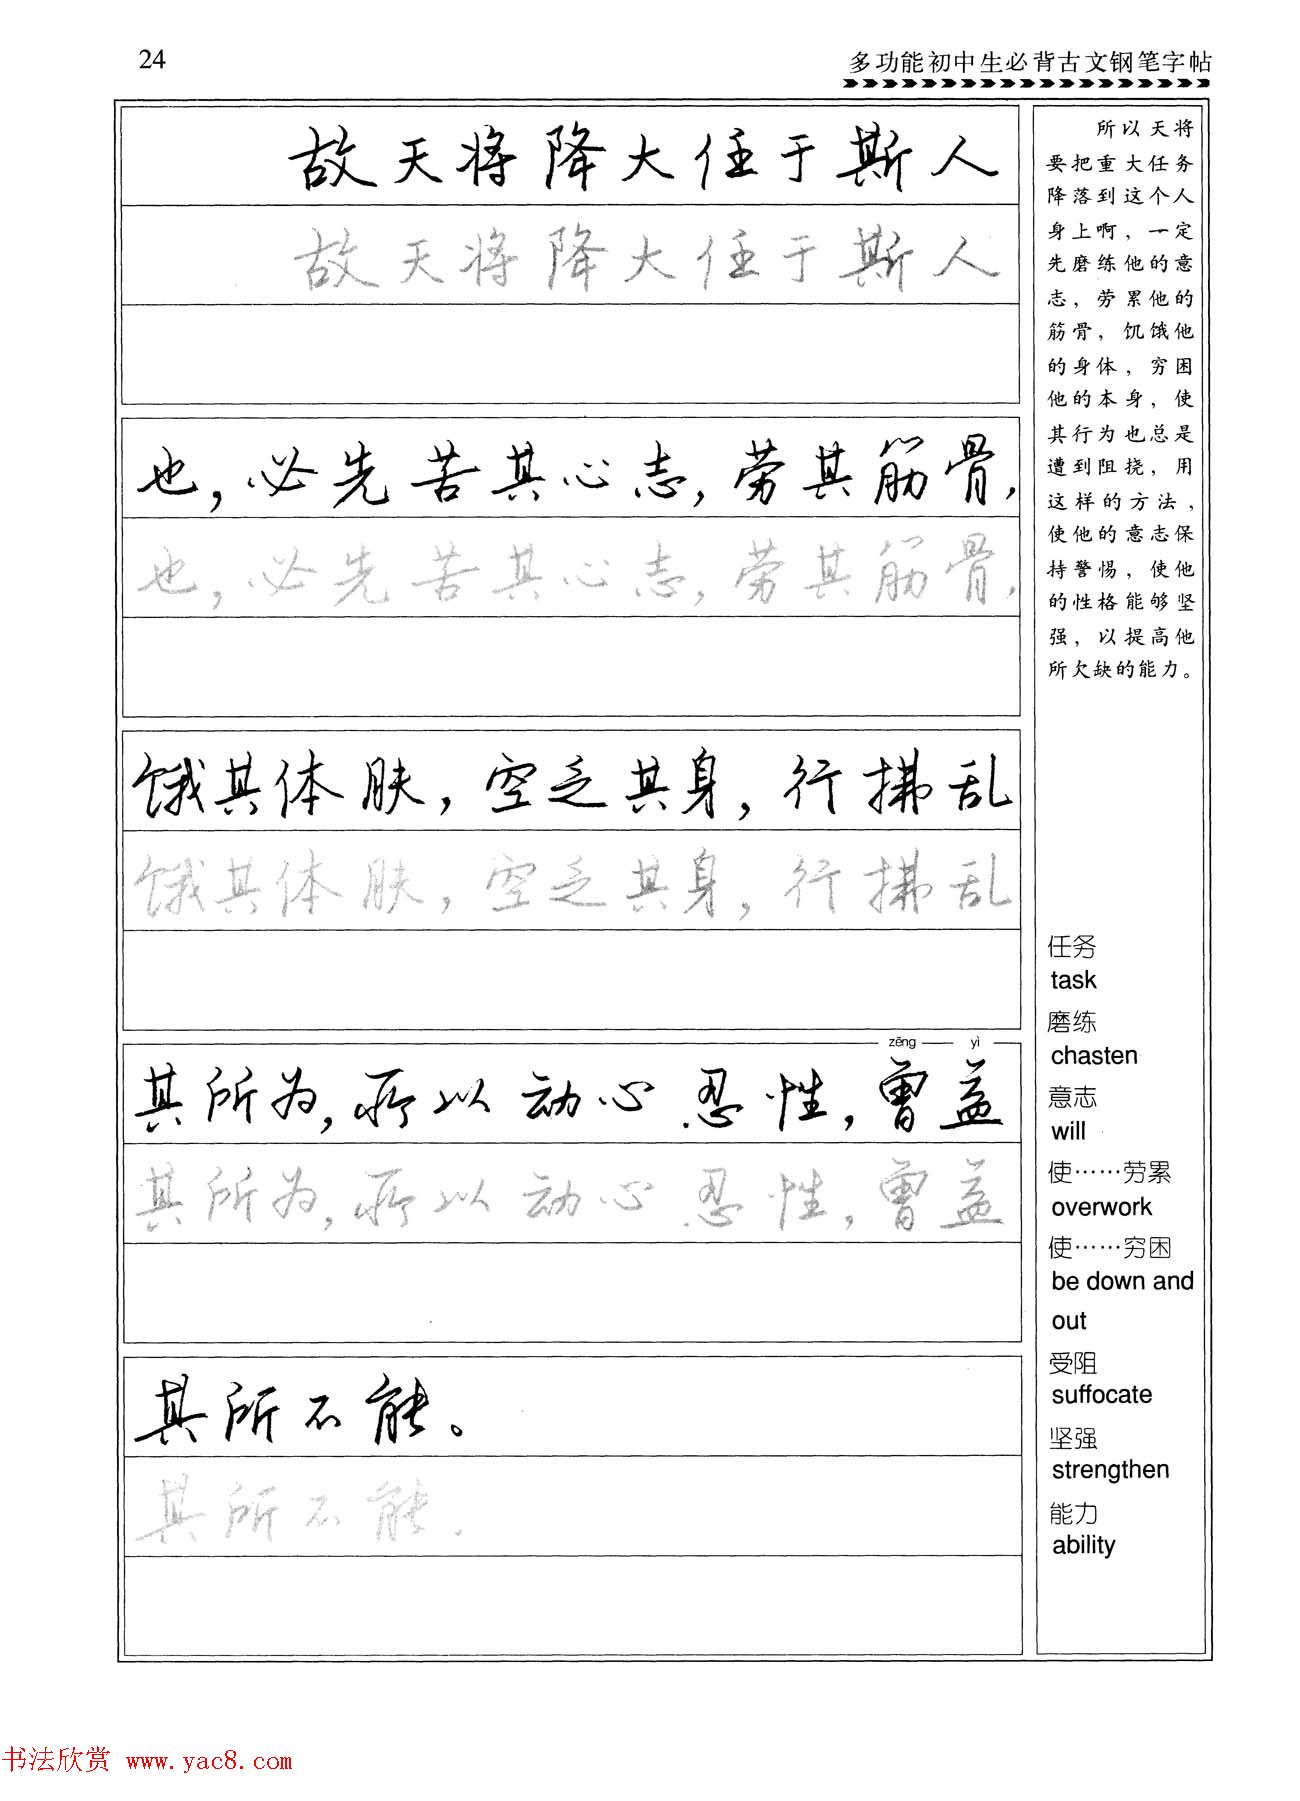 24
多功能初中生必背古文钢笔字帖
故天将降大任于斯人
故天将降大任于斯人
也，必先苦其心志，劳其筋骨，
也，必先苦其心志，劳其筋骨，
饿其体肤，空乏其身，行拂乱
饿其体肤，空乏其身，行拂乱
zēng yì
其所为，所以动心忍性，曾益
其所为，所以动心忍性，曾益
其所不能。
其所不能。
所以天将
要把重大任务
降落到这个人
身上啊，一定
先磨练他的意
志，劳累他的
筋骨，饥饿他
的身体，穷困
他的本身，使
其行为也总是
遭到阻挠，用
这样的方法，
使他的意志保
持警惕，使他
的性格能够坚
强，以提高他
所欠缺的能力。
任务
task
磨练
chasten
意志
will
使……劳累
overwork
使……穷困
be down and
out
受阻
suffocate
坚强
strengthen
能力
ability
书法欣赏 www.yac8.com